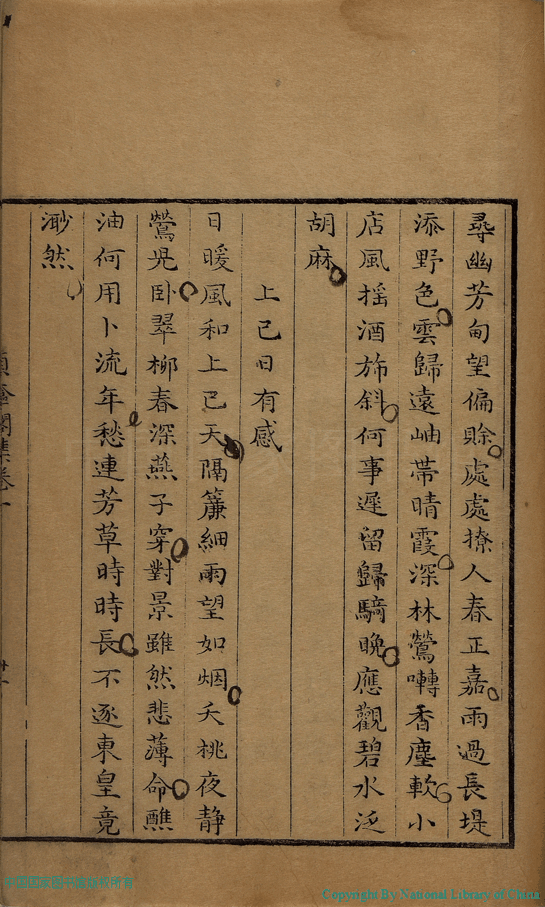 尋幽芳甸望偏賒處處撩人春正嘉雨過長堤
添野色雲歸遠岫帶晴霞深林鶯囀香塵軟小
店風搖酒斾斜何事遲留歸騎晚應觀碧水泛
胡麻
上巳日有感
日暖風和上巳天隔簾細雨望如烟夭桃夜靜
鶯兒卧翠柳春深燕子穿對景雖然悲薄命醮
油何用卜流年愁連芳草時時長不逐東皇竟
渺然
閣集卷一
Copyright By National Library of China